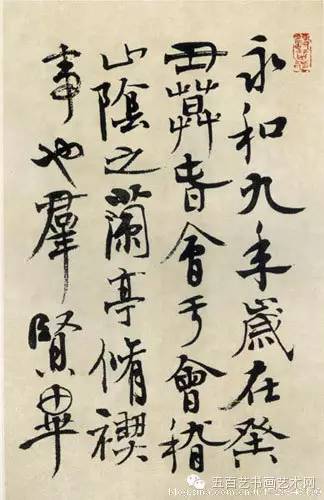 永和九年歲在癸
丑暮春會于會稽
山陰之蘭亭脩禊
事也羣賢畢
五百艺书画艺术网